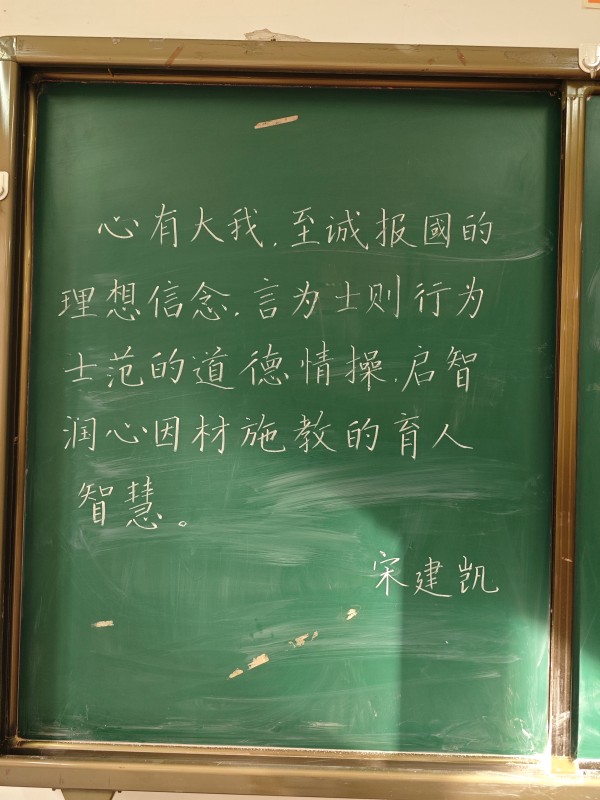 心有大我,至诚报國的
理想信念,言为士则行为
士范的道德情操,启智
润心因材施教的育人
智慧。
宋建凯